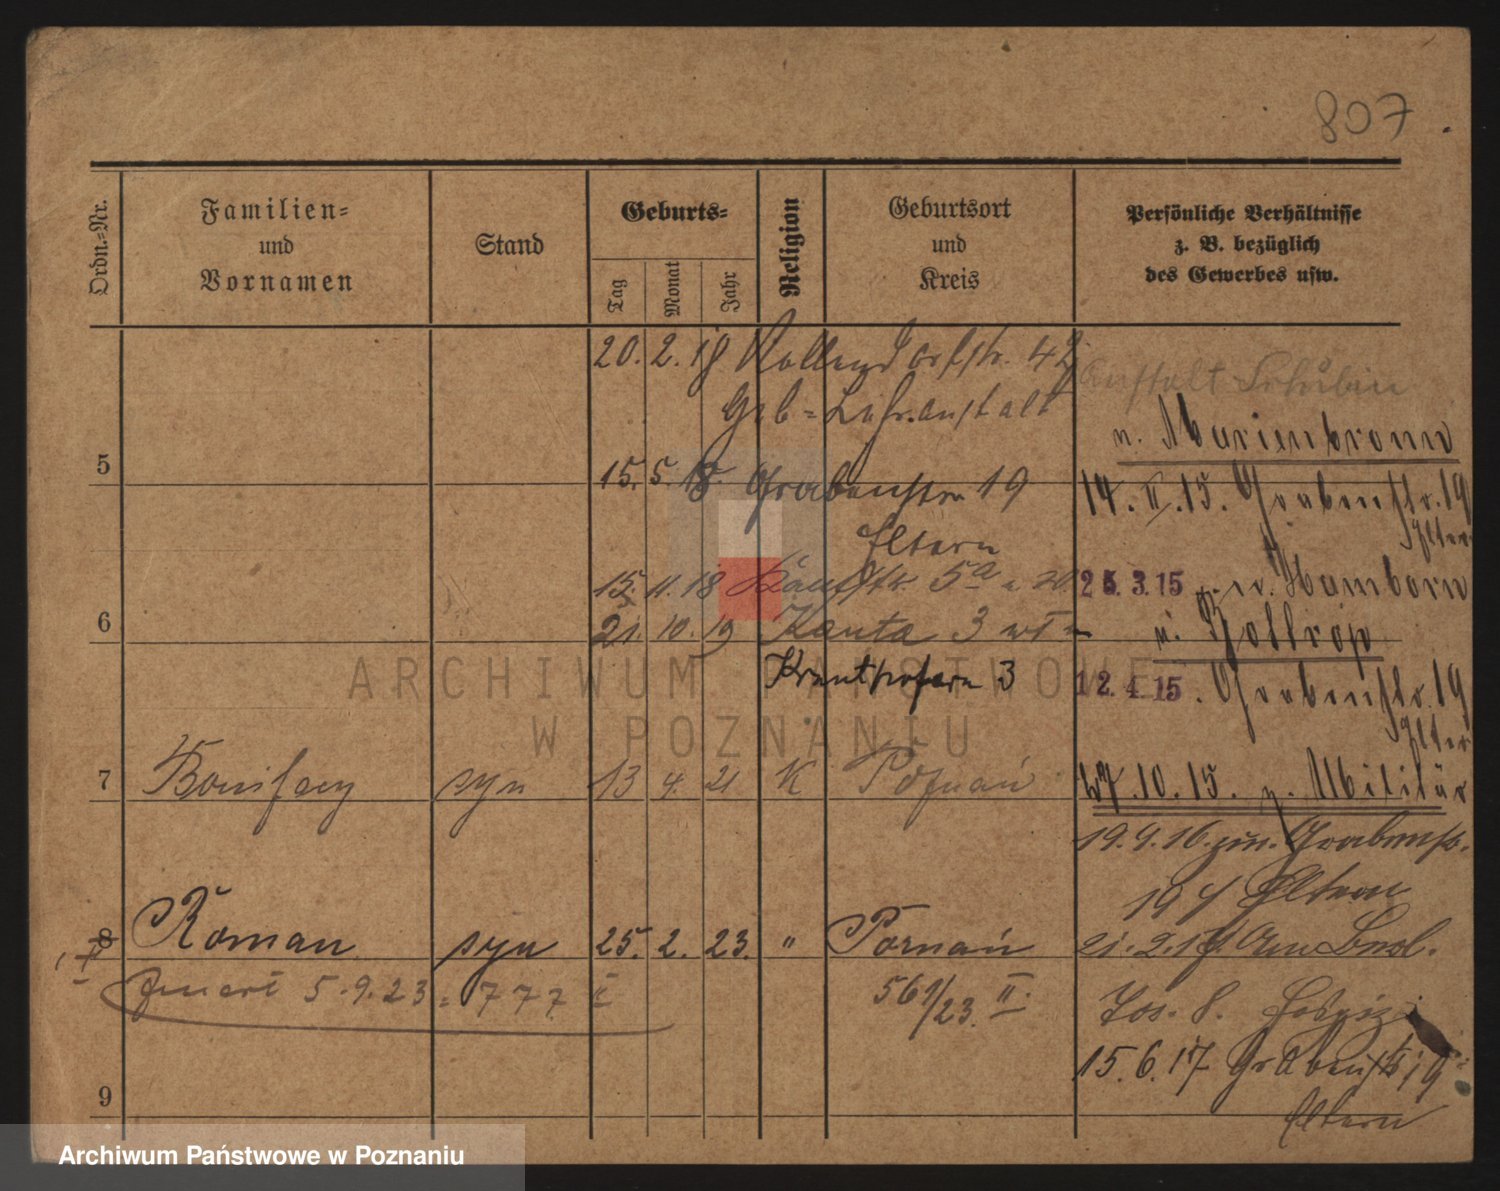 807
Ordn.-Nr.
Familien-
und
Vornamen
Stand
Geburts-
Tag
Monat
Jahr
Religion
Geburtsort
und
Kreis
Persönliche Verhältnisse
z. B. bezüglich
des Gewerbes usw.
20. 2. 18 Kollendorfstr. 42
Anstalt Schubin
Geb = Lehranstalt
n. Marienbronn
5
15. 5. 18. Grabenstr. 19
14. II. 15. Grabenstr. 19
Eltern
15. 11. 18 5a
25. 3. 15 n. Hamborn
6
21. 10. 19 Kanta 3
n. Bottrop
3
12. 4. 15. Grabenstr. 19
7
Bonifacy syn 13 4. 21 K Poznań
27. 10. 15. z. Militär
19. 9. 16. Grabenstr.
19 Eltern
8
Roman syn 25. 2. 23. " Poznań
21. 2. 17
zmarł 5.9.23 = 777 I
561/23. II.
Jos. 8.
15. 6. 17 Grabenstr. 19
9
Eltern
ARCHIWUM PAŃSTWOWE
W POZNANIU
Archiwum Państwowe w Poznaniu